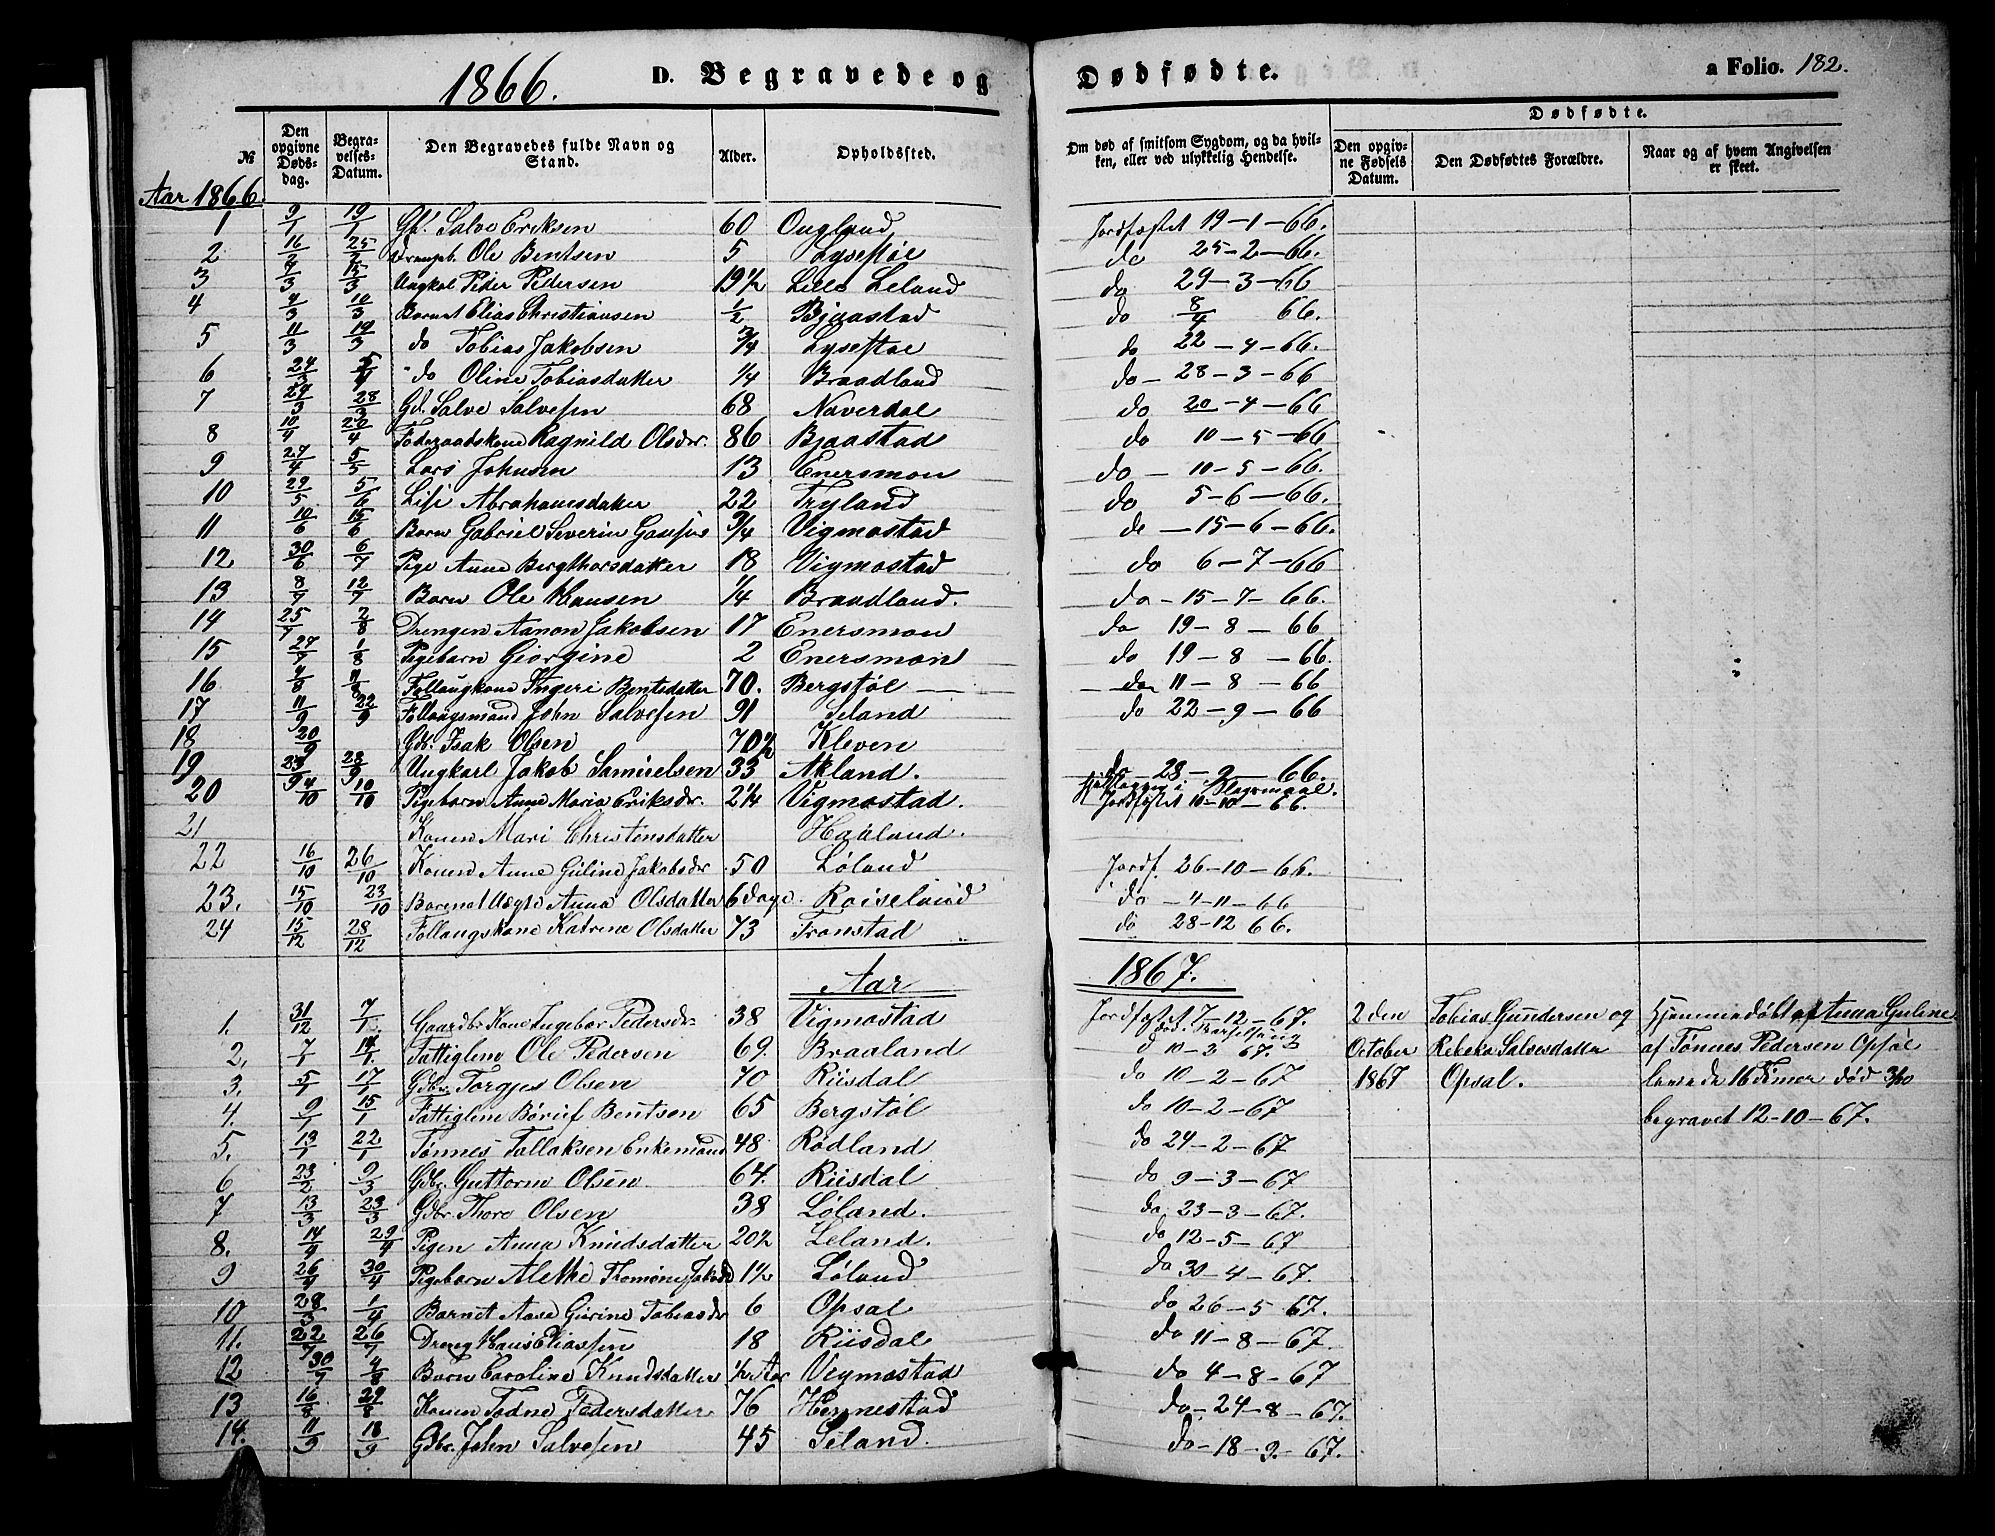 1866. D. Begravede og Dødfødte. a Folio. 182.
№ Den opgivne Dødsdag. Begravelses-Datum. Den Begravedes fulde Navn og Stand. Alder. Opholdssted. Om død af smitsom Sygdom, og da hvilken, eller ved ulykkelig Hendelse. Dødfødte. Den opgivne Fødsels Datum. Den Dødfødtes Forældre. Naar og af hvem Angivelsen er skeet.
Aar 1866.
1 9/1 19/1 Salve Eriksen 60 Ougland Jordfæstet 19-1-66.
2 16/2 25/2 Ole Bentsen 5 Lysestøe do 25-2-66.
3 15/3 Ungkal Peder Pedersen 19 1/2 Lille Leland do 29-3-66
4 4/3 10/3 Barnet Elias Christiansen 1/2 Bjaastad do 8/4 66.
5 11/3 19/3 do Tobias Jakobsen 3/4 Lysestøe do 22-4-66.
6 do Oline Tobiasdatter 1/4 Braadland do - 28-3-66
7 28/3 Gd. Salve Salvesen 68 Naverdal do 20-4-66
8 10/4 22/4 Føderaadskone Ragnild Olsdr. 86 Bjaastad do 10-5-66
9 27/4 5/5 Lars Johnsen 13 Enersmon do - 10-5-66.
10 29/5 5/6 Lise Abrahamsdatter 22 Tryland do 5-6-66.
11 10/6 15/6 Barn Gabriel Severin 3/4 Vigmostad do - 15-6-66.
12 30/6 6/7 Pige Anne Bergthorsdatter 18 Vigmostad do 6-7-66
13 8/7 12/7 Barn Ole Hansen 1/4 Braadland. do - 15-7-66.
14 25/7 2/8 Drengen Aanon Jakobsen 17 Enersmon do 19-8-66
15 27/7 1/8 Pigebarn Giorgine 2 Enersmon do 19-8-66.
16 4/8 11/8 Follaugkone Ingeri Bentsdatter 70. Bergstøl do 11-8-66
17 11/9 22/9 Follaugsmand John Salvesen 91 Leland do 22-9-66
18 20/9 Gbr. Isak Olsen 70 1/2 Kleven
19 23/9 28/9 Ungkarl Jakob Samuelsen 33 Akland. do - 28-9-66.
20 4/10 10/10 Pigebarn Anne Maria Eriksdr. 2 1/4 Vigmostad. Jordfæstet 10-10-66.
21 Konen Mari Christensdatter Haaland.
22 16/10 26/10 Konen Anne Guline Jakobsdr 50 Løland Jordf. 26-10-66.
23. 15/10 23/10 Barnet Anna Olsdatter 6 dage. Roiseland do - 4-11-66
24 15/12 28/12 Follaugskone Katrine Olsdatter 73 Tronstad do 28-12 66.
Aar 1867.
1. 31/12 7/1. Gaardbr Kone Ingebor Pedersdr 38 Vigmostad Jordfæstet 7-12-67. 2den Tobias Gundersen og Hjemmedøbt af Anna Guline
2. 7/1 Fattiglem Ole Pedersen 69. Braaland 10-3 67. October Rebeka Salvesdatter af Tønnes Pedersen Opsal
3. 5/1 17/1 Gdbr. Torgjes Olsen 70 Riisdal do 10-2-67 1867 Opsal. levede 16 Timer død 3/10
4. 9/1 15/1 Fattiglem Bentsen 65 Bergstøl do 10-2-67 begravet 12-10-67.
5. 13/1 22/1 Tønnes Tallaksen Enkemand 48 Rødland do 24-2-67
6 23/2 9/3 Gdbr Guttorm Olsen. 64. Riisdal do 9-3-67
7 13/3 23/3 Gdbr Thore Olsen 38 Løland. do. 23-3-67.
8. 14/4 29/4 Pigen Anna Knudsdatter 20 1/2 Leland. do 12-5-67
9 26/4 30/4 Pigebarn Alethe 1 1/2 Løland do 30-4-67.
10 28/3 1/4 Barnet Aase Gurine Tobiasdr 6 Opsal do 26-5 67.
11. 22/7 26/7 Dreng Hans Eliassen 18 Riisdal do 11-8-67.
12 30/7 4/8 Barn Caroline Knudsdatter 1/2 Aar Vigmostad do 4-8-67
13 16/8 29/8 Konen Todne Pedersdatter. 76 Hennestad do - 24-8-67.
14. 11/9 18/9 Gdbr. John Salvesen 45 Leland. do - 18-9.-67.